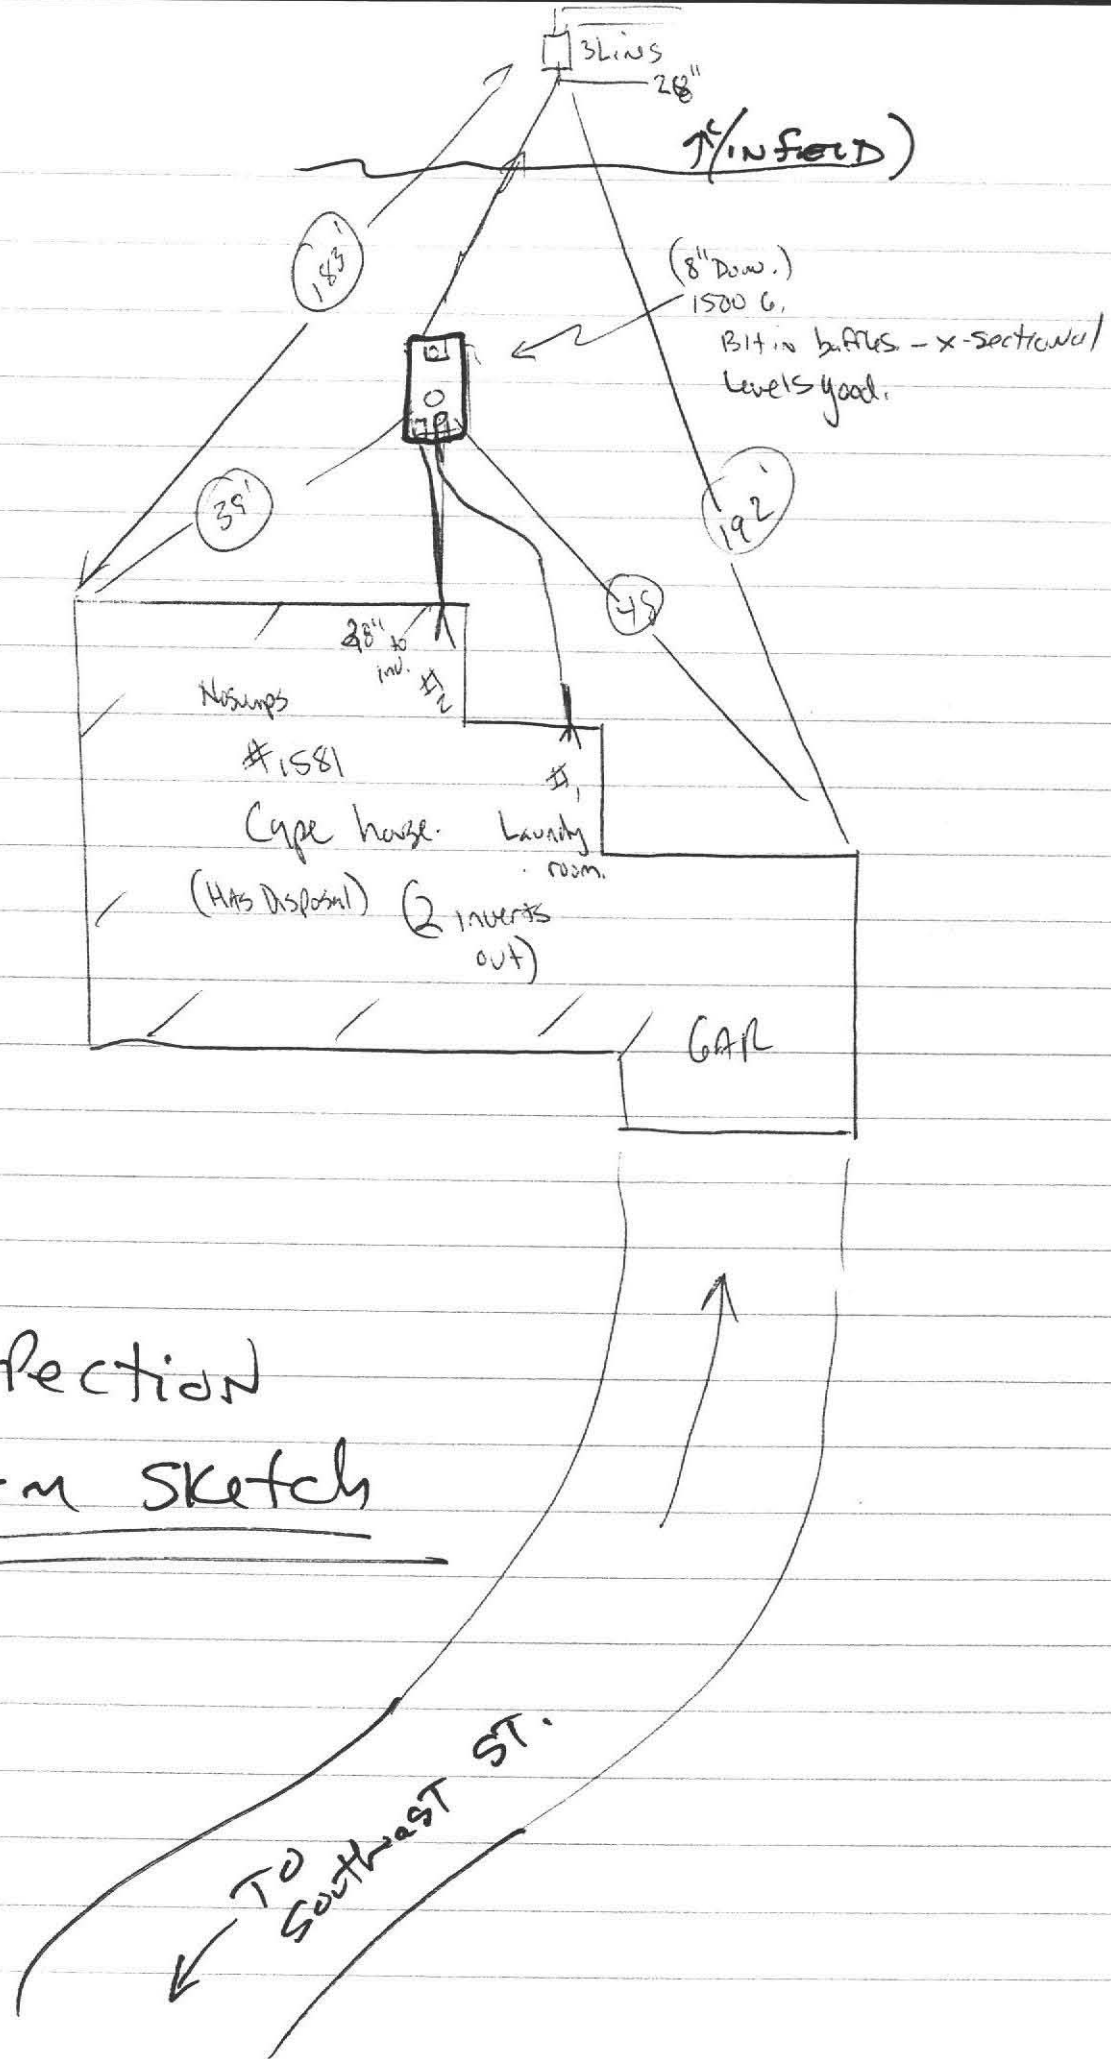 3 Lines
28"
↑ (IN field)
183'
(8" Down.)
1500 G.
Blt in baffles. - x-sectional
Levels good.
39'
192'
48
28" to
inv.
#2
No sumps
#1581
#1
Cape house.
Laundry
room.
(HAS Disposal)
(2 inverts
out)
GAR
Pection
m Sketch
TO
Southeast ST.